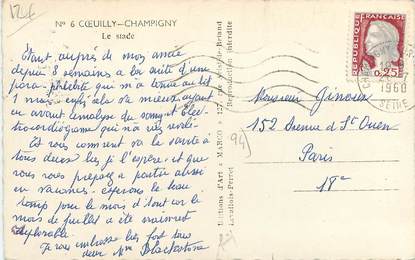 12f
N° 6 CŒUILLY-CHAMPIGNY
Le stade
Etant auprès de mon amie
depuis 3 semaines a la suite d'une
para-phlébite qui m'a tenue au lit
1 mois enfin cela va mieux ayant
eu avant l'analyse du sang et élec-
trocardiogramme qui n'a rien révélé
Et vous comment va la santé à
tous deux bien je l'espère et que
vous vous préparez a partir aussi
en vacances espérons le beau
temps pour le mois d'août car le
mois de juillet a été vraiment
déplorable
Je vous embrasse bien fort tous
deux Mme Blackstone
Editions d'Art "MARCO" 127, rue Aristide-Briand
Levallois-Perret
Reproduction interdite
REPUBLIQUE FRANÇAISE
0,25
1960
SEINE
Monsieur Ginoux
152 Avenue de St Ouen
Paris
18e
94